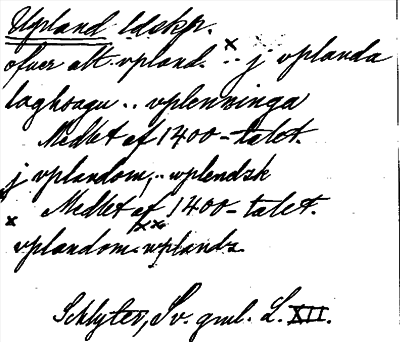 Upland ldskp.
ofuer alt vpland. .. j vplanda
laghsagu .. vplenninga
Medlet af 1400-talet.
j vplandom, .. wplendzk
x Medlet af 1400-talet.
vplandom. wplandz.
Schlyter, Sv. gml. L. XII.